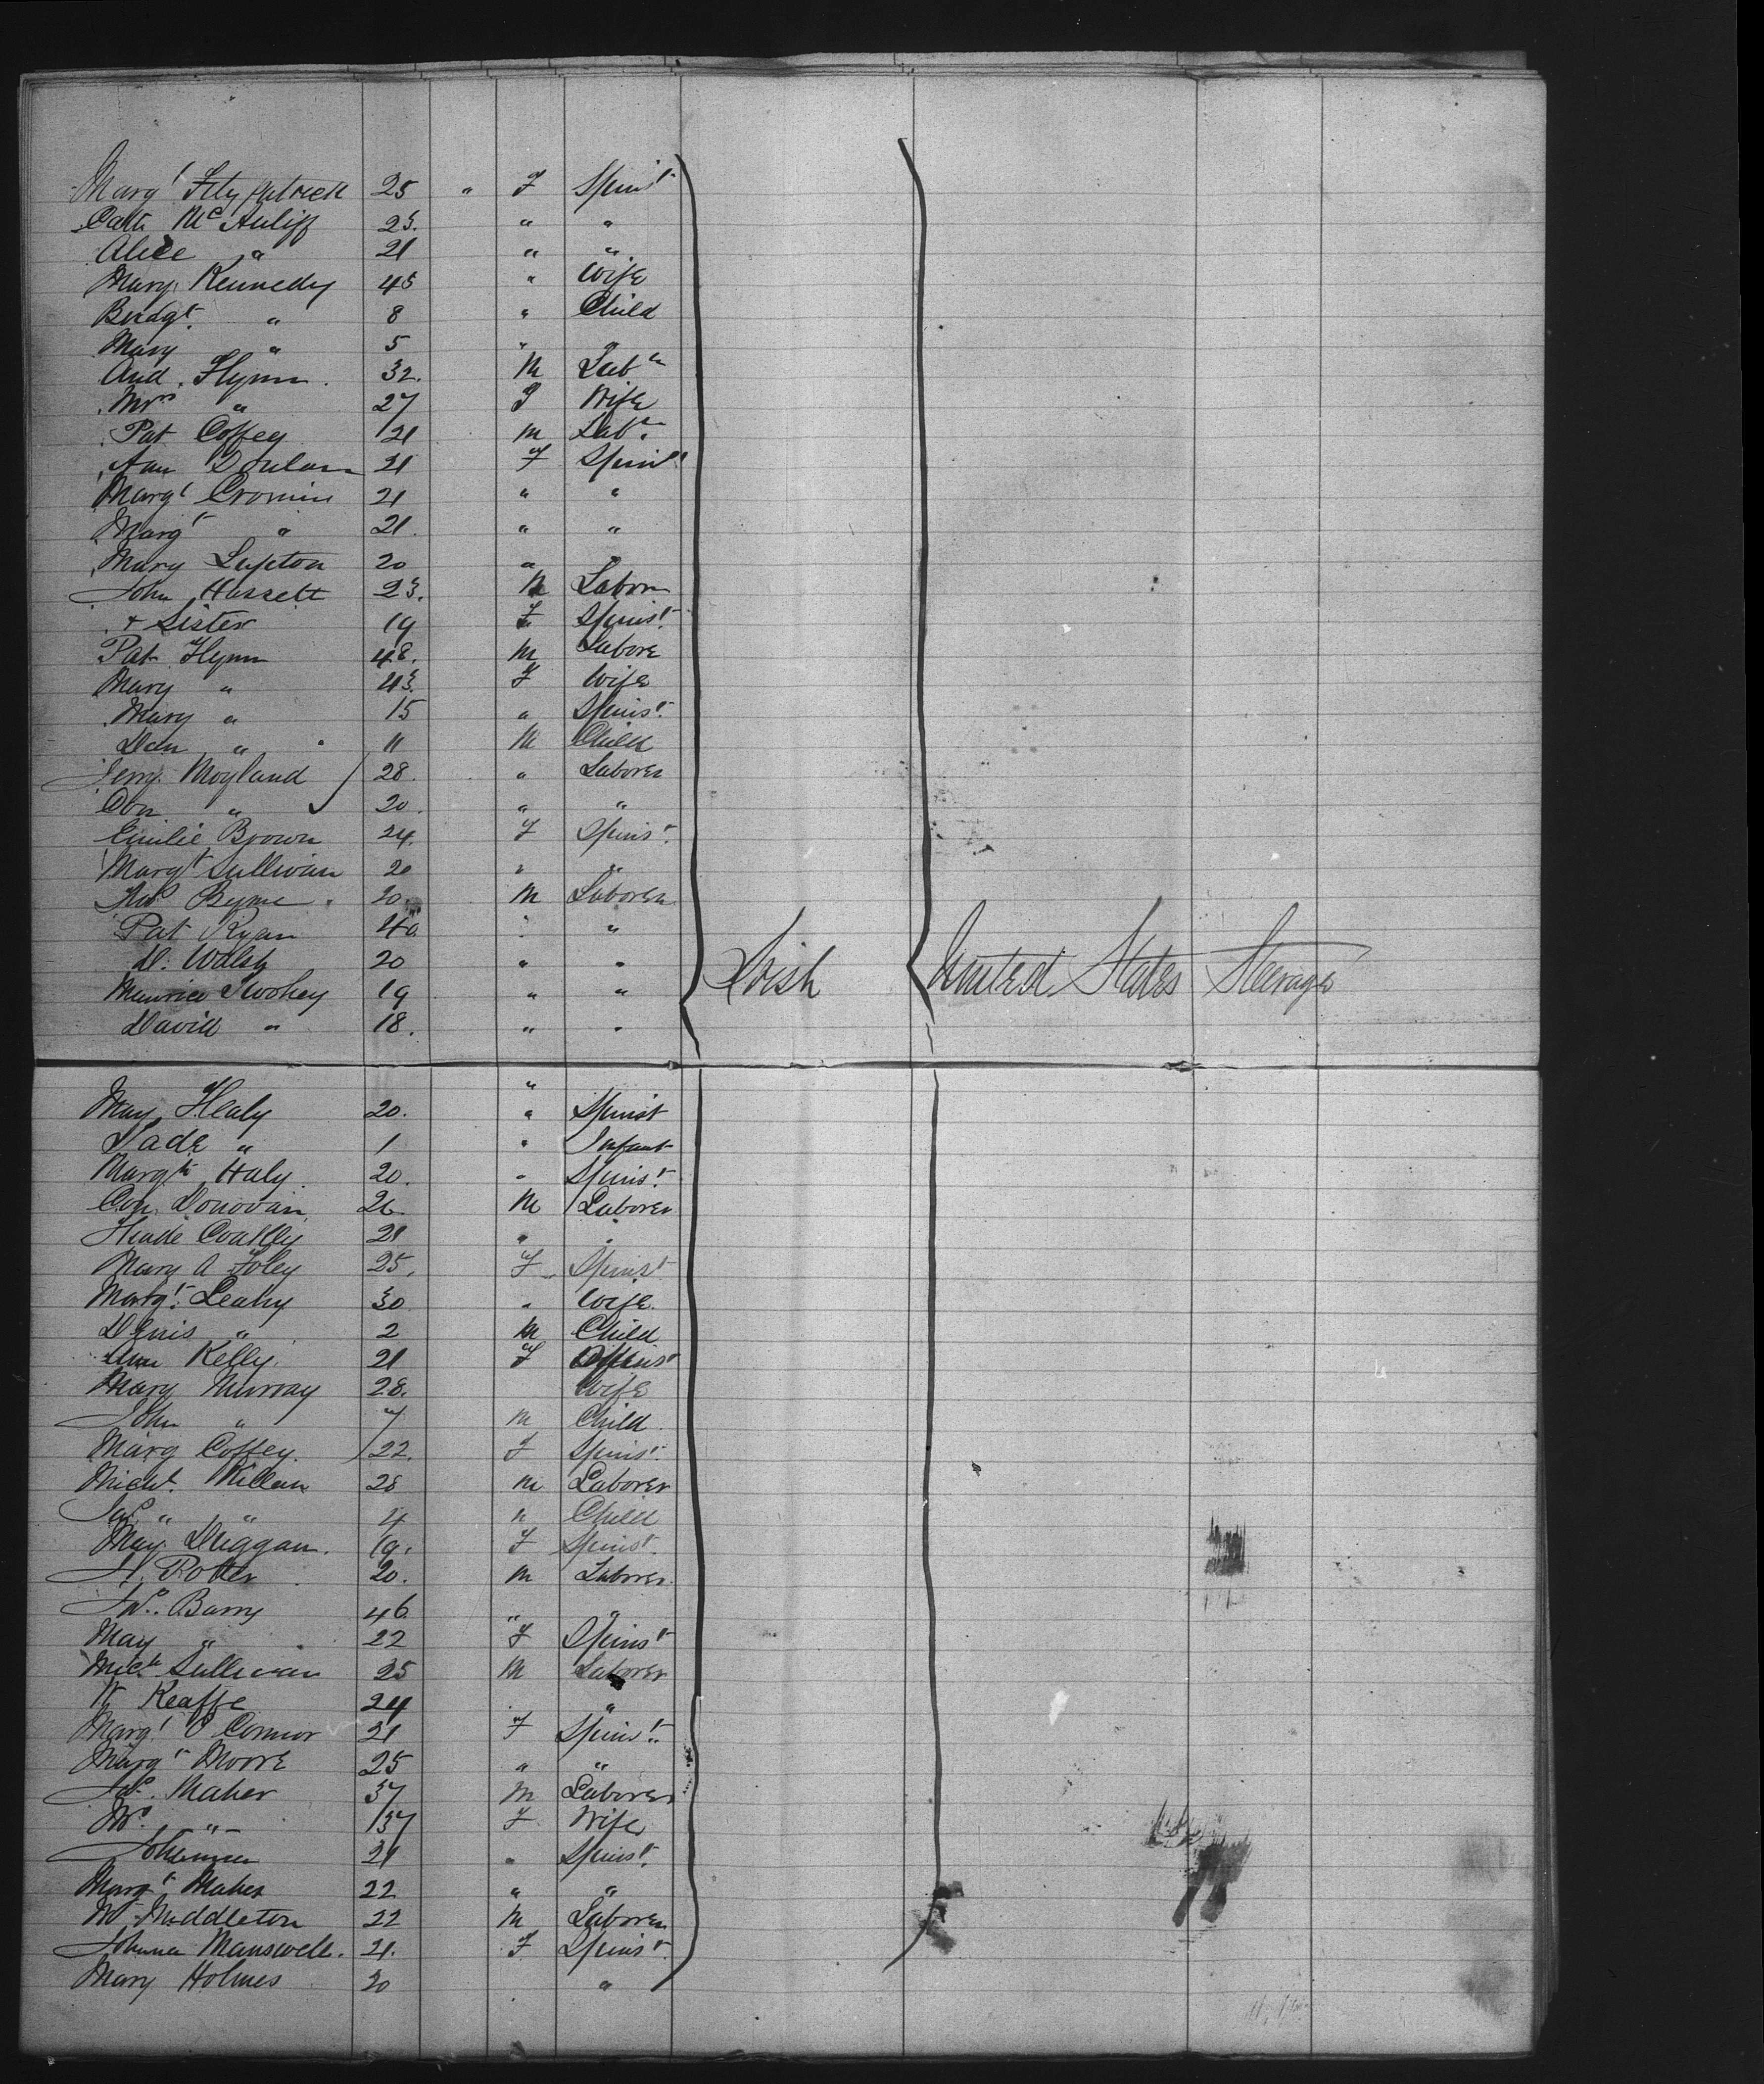 Marg't Fitzpatrick 25 " F Spinst
Cath McAuliff 23. " "
Alice " 21 " "
Mary Kennedy 45 " Wife
Bridgt. " 8 " Child
Mary " 5 " "
And. Flynn. 32. M Labr
Mrs " 27 F Wife
Pat Coffey 21 M Labr.
Ann Donlan 21 F Spinst
Margt Cronin 21 " "
Margt " 21. " "
Mary Lupton 20 "
John Hassett 23. M Labor
+ Sister 19 F Spinst.
Pat Flynn 48. M Labore
Mary " 43. F Wife
Mary " 15 " Spinst.
Dan " 11 M Child
Jerry Moyland 28. " Laborer
Con " 20. " "
Emilie Brown 24. F Spinst.
Margt Sullivan 20 " "
Byrne. 20. M Laborer
Pat Ryan 40 " "
D. Walsh 20 " "
Irish United States Steerage
Maurice Twohey 19 " "
David " 18. " "
"
May Healy 20. " Spinst
" 1 " Infant
Margt Haly. 20. " Spinst.
Con. Donovan 26 M Laborer
Coakley 21 " "
Mary A Foley 25. F Spinst
Margt. Leahy 30 " Wife.
Denis " 2 M Child
Ann Kelly. 21 F Spinst
Mary Murray 28. Wife
John " 7 M Child
Marg Coffey. 22. F Spinst.
Michl. Killean 28 M Laborer
Jas " " 4 " Child
May Duggan. 19. F Spinst.
Potter 20. M Laborer
Jno. Barry 46 " "
May " 22 F Spinst
Mich Sullivan 25 M Laborer
W Keaffe 24 . "
Margt O Connor 21 F Spinst.
Margt Moore 25 " "
Maher 37 M Laborer
Mrs. " 37 F Wife
Johanna 21 " Spinst.
Margt Maher 22 " "
W Middleton 22 M Laborer
Johanna Manswell. 21. F Spinst.
Mary Holmes 20 "